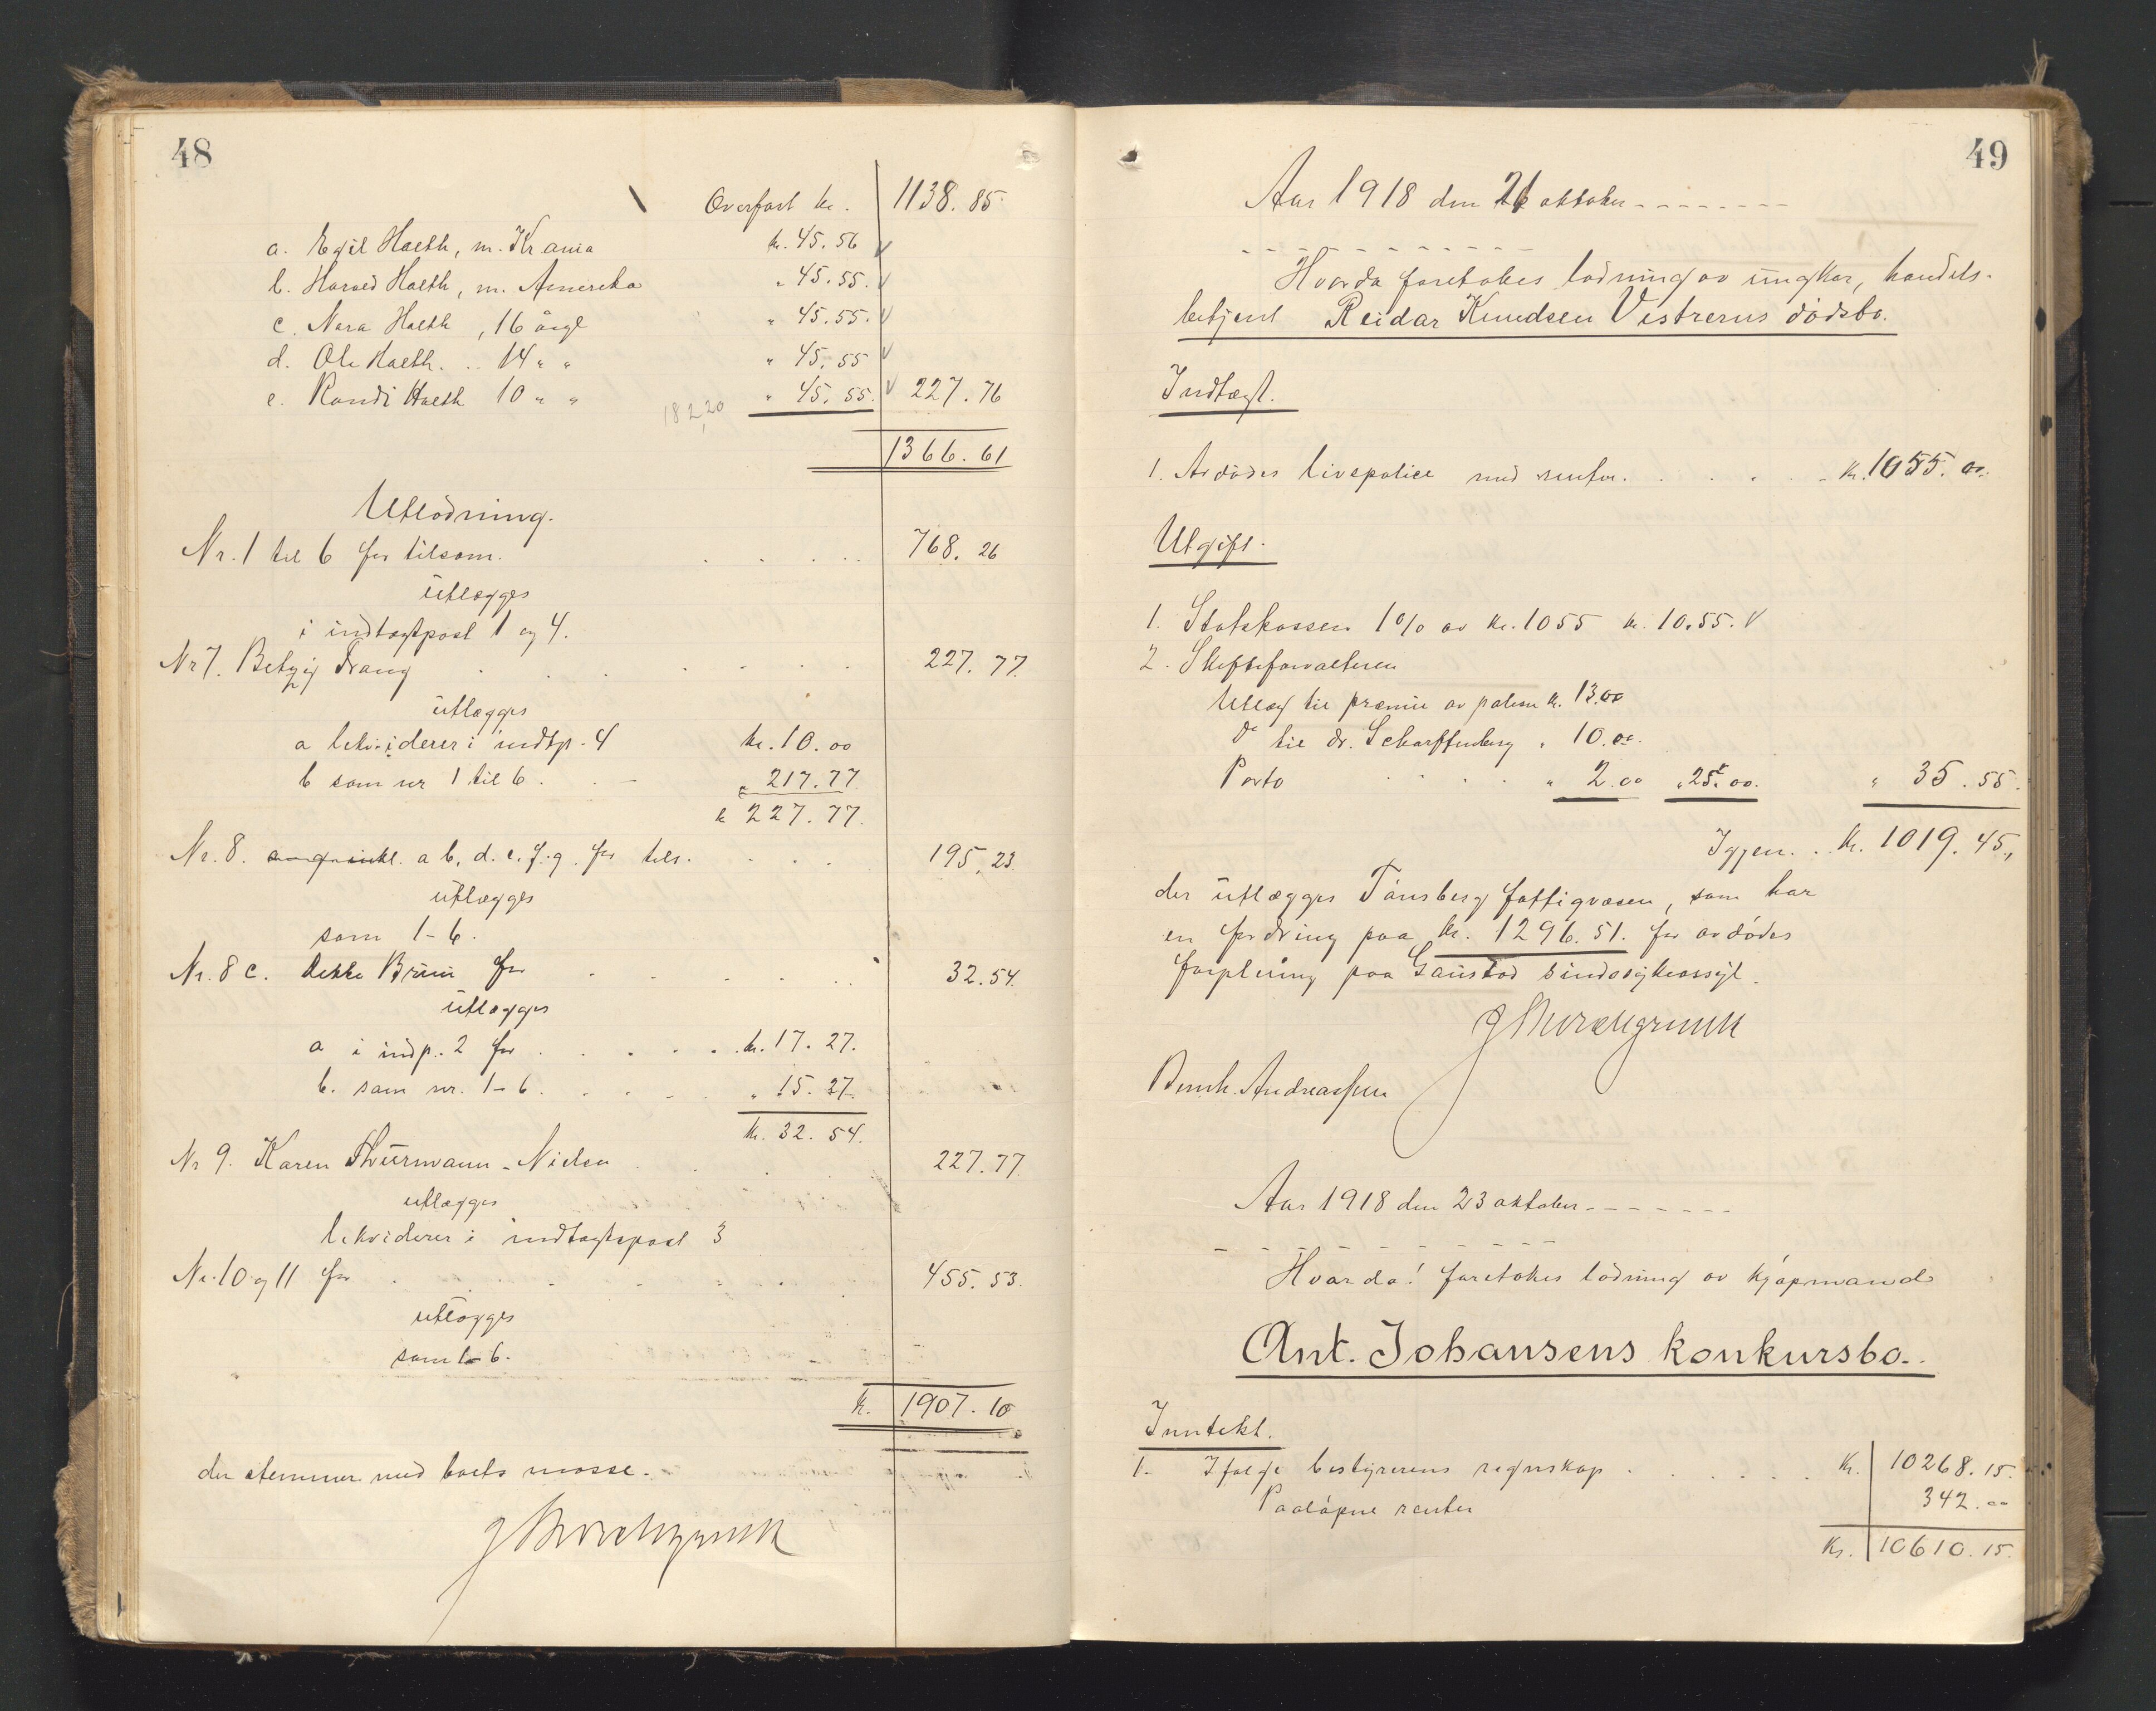 48
Overført kr. 1138.85
a. Egil Haeth, m. Krania kr. 45.56
b. Harald Haeth, m. Amerika " 45.55.
c. Nora Haeth, 16 årgl " 45.55.
d. Ole Haeth. .. 14 " " " 45.55
e. Randi Haeth 10 " " 182,20 " 45.55. 227.76
1366.61
Utlodning.
Nr. 1 til 6 før tilsam. 768.26
utlægges
i indtægtpost 1 og 4.
Nr 7. 227.77.
utlægges
a likviderer i indtp. 4 kr. 10.00
b som nr 1 til 6. " 217.77
k 227.77.
Nr. 8. a b, d. e. f. g. før tils. 195.23.
utlægges
som 1-6.
Nr. 8 c. Bruun før 32.54.
utlægges
a i indp. 2 før kr. 17.27.
b. som nr. 1-6. " 15.27.
kr. 32.54.
Nr 9. Karen Thurmann-Nielsen 227.77.
utlægges
likviderer i indtægtspost 3
Nr. 10 og 11 før 455.53.
utlægges
som 1-6.
k. 1907.10
der stemmer med boets masse.
49
Aar 1918 den 21 oktober
Hvorda foretokes lodning av ungkar, handels-
betjent Reidar Knudsen Vestrerus dödsbo.
Indtægt.
1. Avdödes livspolice med renter. kr. 1055.00.
Utgift.
1. Statskassen 1% av kr. 1055 kr. 10.55.
2. Skifteforvalteren
Utlæg til præmie av polisen kr. 13.00
do til dr. Scharffenberg " 10.00.
Porto " 2.00 " 25.00. " 35.55.
Igjen. kr. 1019.45,
der utlægges Tönsberg fattigvæsen, som har
en fordring paa kr. 1296.51. for avdödes
forpleining paa Gaustad sindssykeasyl.
Bernh. Andreassen
Aar 1918 den 23 oktober
Hvorda! foretokes lodning av kjöpmand
Ant. Johansens konkursbo.
Inntekt.
1. Ifølge bestyrerens regnskap kr. 10268.15.
Paaløpne renter 342.00
Kr. 10610.15.